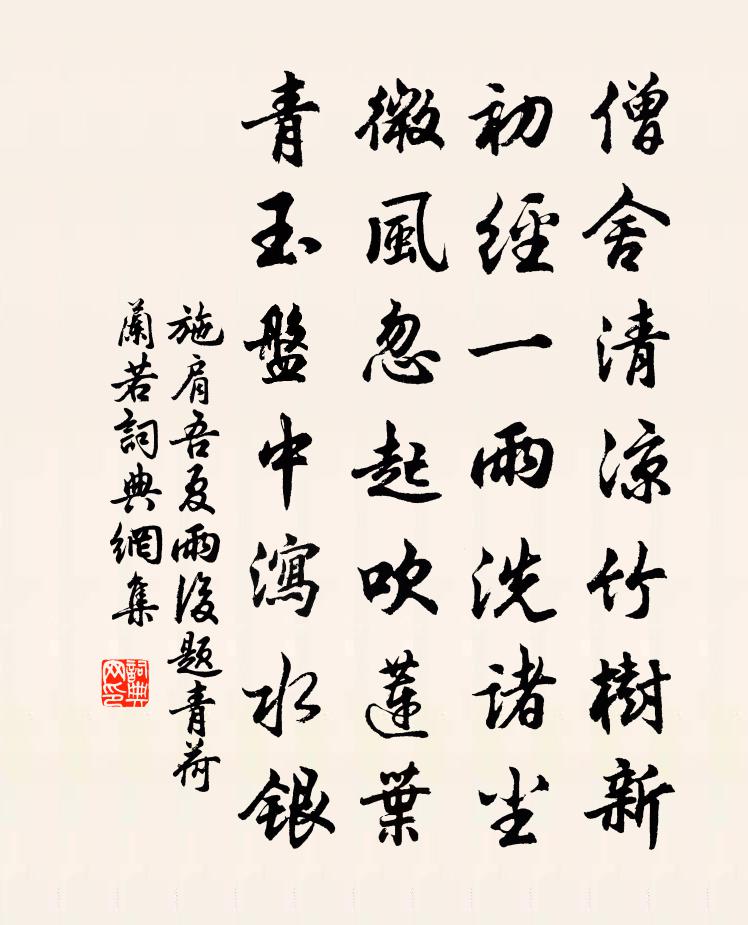 僧舍清涼竹樹新
初經一雨洗諸尘
微風忽起吹蓮葉
青玉盤中瀉水銀
施肩吾夏雨後題青荷
蘭若詞典網集
詞典网印